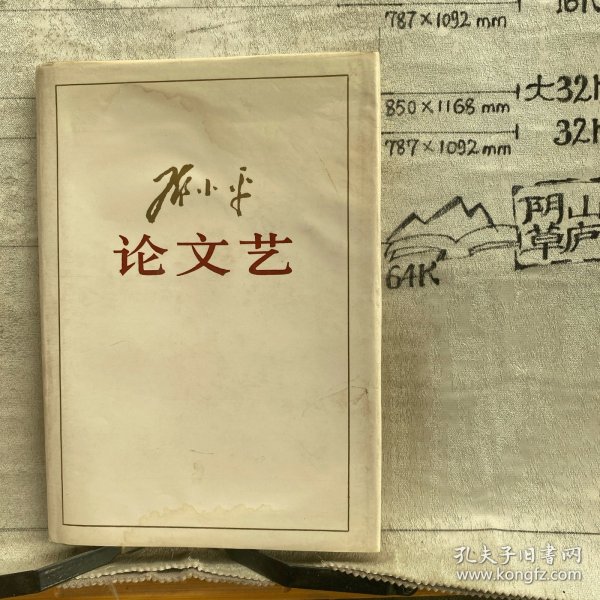 邓小平
论文艺
787×1092mm
16K
850×1168mm
大32K
787×1092mm
32K
64K
阴山
草庐
孔夫子旧书网
www.kongfz.com